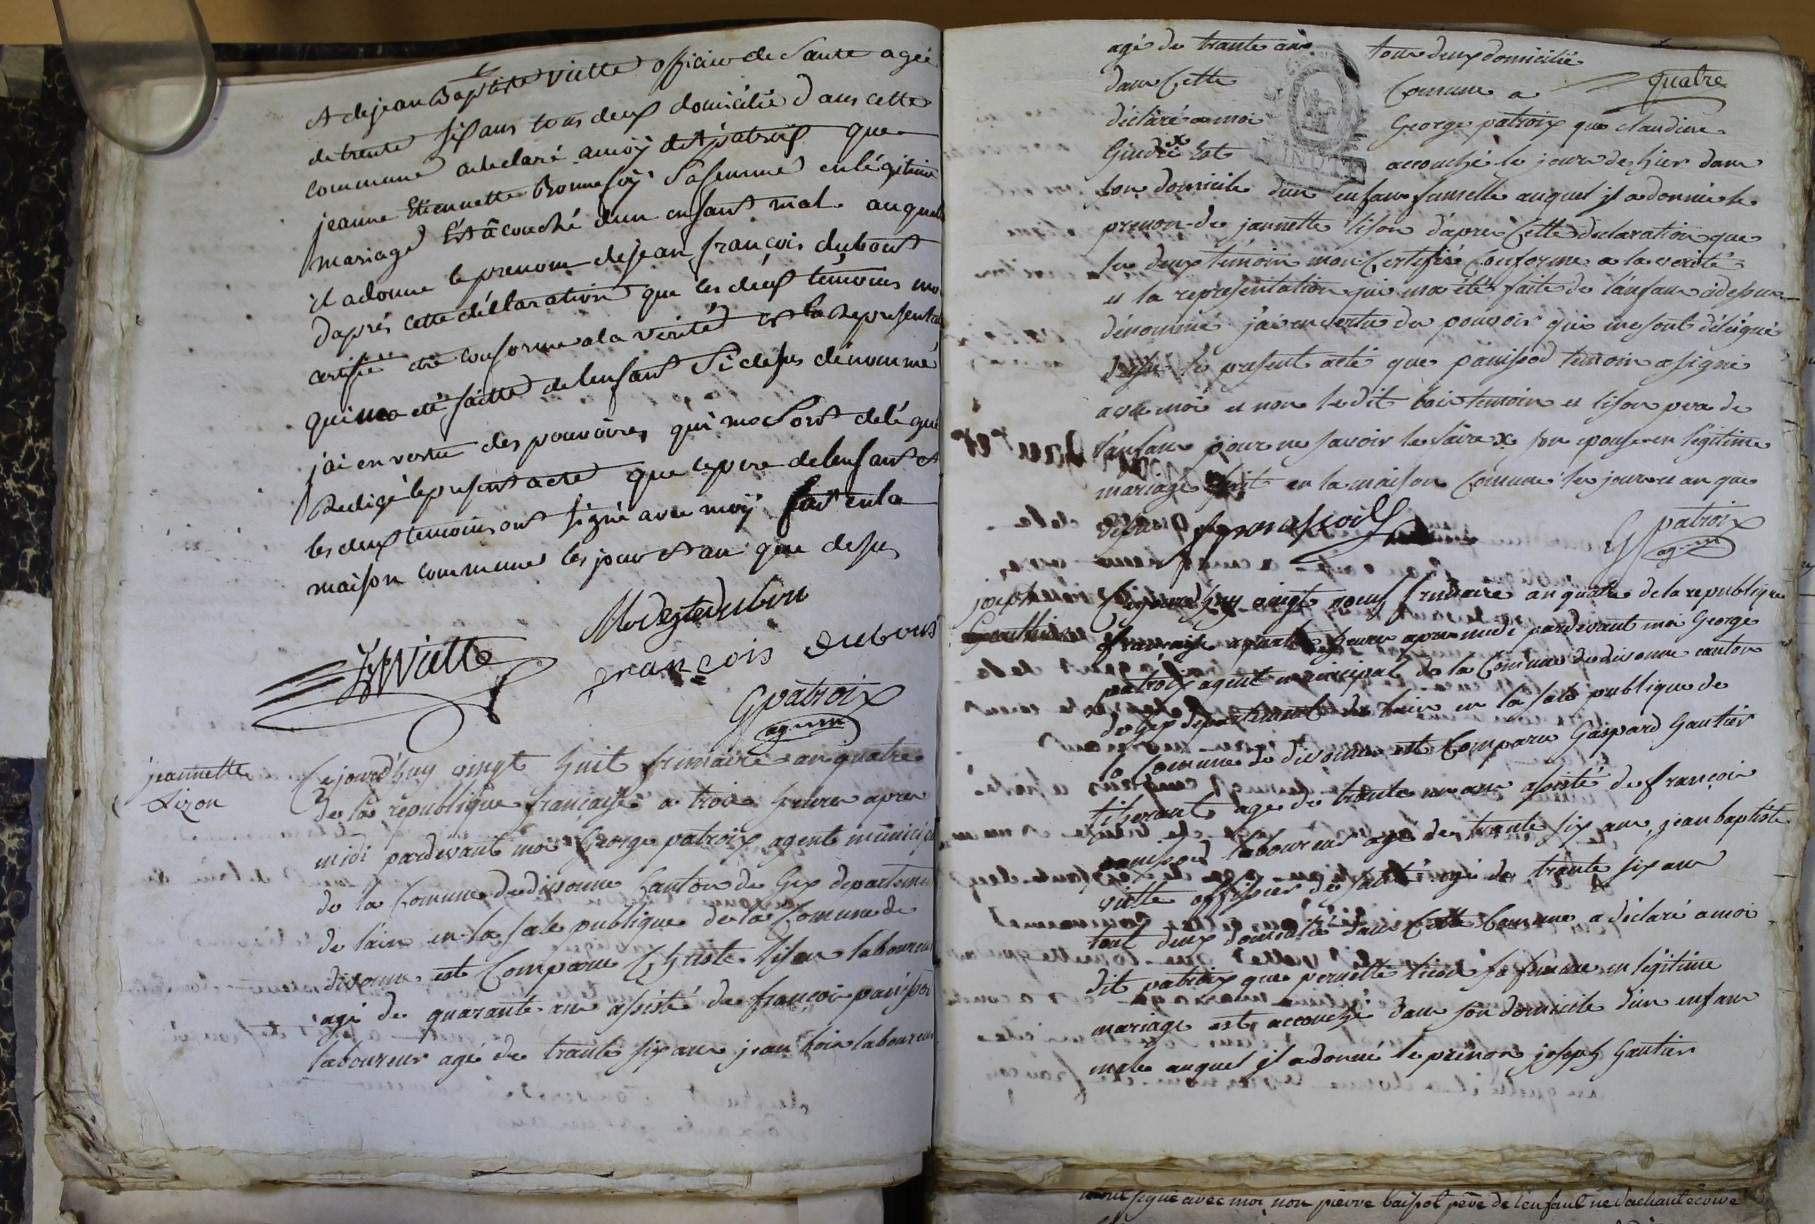 et de jean Baptiste viette officier de Sante agé
de trente six ans tous deux domicilié dans cette
commune a declaré a moÿ dit patroix que
jeanne Etiennette Bonnefoÿ Sa femme en légitime
mariage Est acouché d'un enfant mal auquel
il a donne le prenom de jean françois dubout
d'aprés cette déclaration que les deux témoins mon
certifié etre conforme a la vérité et la Represent
qui ma eté faitte de lenfant Si desus dénommé
j'ai en vertu des pouvoires qui me Sont delégué
Redigé le present acte que le pere de lenfant et
les deux temoins ont signé avec moÿ fait en la
maison commune les jour et an que desus
Modeste dubou
JB Viette
françois dubout
G patroix
ag. m
jeannette
Lizon
Cejourd'huy vingt huit frimaire an quatre
de la republique française a trois heures apres
midi pardevant moi George patroix agent municip
de la Comune de divonne Canton de Gex departeme
de lain en la sale publique de la Comune de
divonne est Comparu Christe lison laboureur
agé de quarante ans assisté de françois panissod
laboureur agé de trante six ans jean bois laboureur
agé de trante ans tous deux domicilié
quatre
dans Cette Comune a
déclaré a moi George patroix que claudine
Gindre x est accouché le jour de hier dans
son domicile d'un enfans fumelle auquel il a donné le
prenon de jannette lison d'apres Cette declaration que
les deux témoin mon Certifié Conforme a la verité
et la representation qui ma été faite de l'anfans cidesus
dénommé j'ai en vertu des pouvoir qui me sont délégué
le present acte que panissod temoin a signé
avec moi et non le dit bois temoin et lison pere de
l'anfans pour ne savoir le faire x son epouse en légitime
mariage fait en la maison Comune les jour et an que
desus
f panissod
G patroix
ag. m
joseph
Gauthier
Cejourd'huy vingt neuf frimaire an quatre de la republique
française a quatre heures apres midi pardevant moi George
patroix agent municipal de la Comune de divonne canton
de Gex departement de lain en la sale publique de
la Comune de divonne est Comparu Gaspard Gautier
tiserant age de trante ans assisté de françois
panissod laboureur agé de trante six ans, jean baptiste
viette offisier de santé agé de trante six ans
tout deux domicilié dans Cette Comune a déclaré a moi
dit patroix que pernette sa femme en légitime
mariage est accouché dans son domicile d'un enfans
male auquel il a donné le prenon joseph Gautier
mont signé avec moi non pierre baissot pere de l'enfant ne sachant ecrire